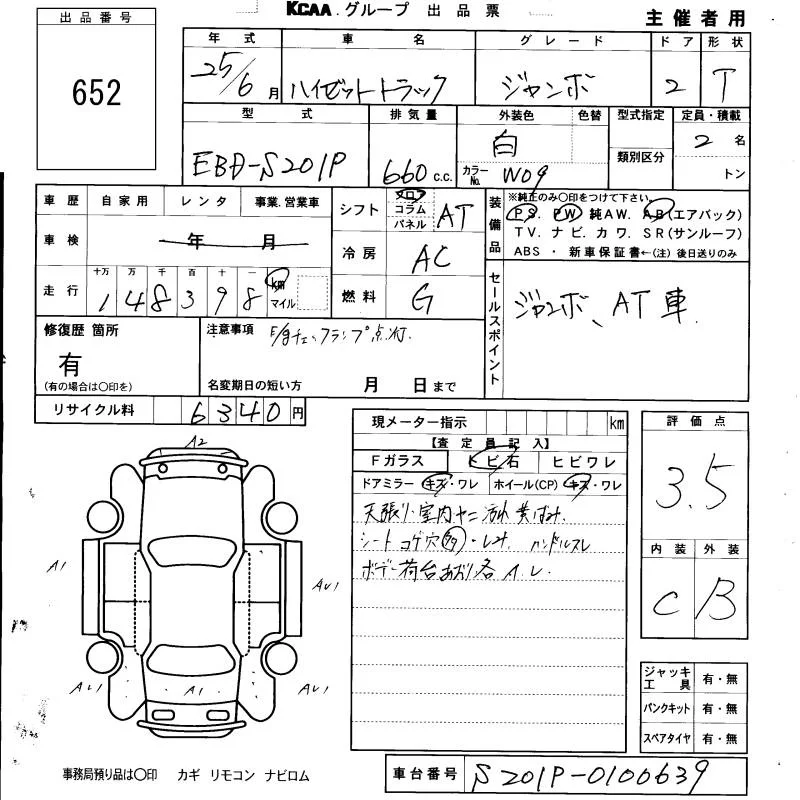 KCAA グループ 出品票
主催者用
出品番号
652
年式 車名 グレード ドア 形状
25/6月 ハイゼットトラック ジャンボ 2 T
型式 排気量 外装色 色替 型式指定 定員・積載
EBD-S201P 660 c.c. 白 2 名
カラーNo. W09 類別区分 トン
車歴 自家用 レンタ 事業.営業車
シフト フロ コラム パネル AT
装備品 ※純正のみ〇印をつけて下さい。
P.S. PW 純AW. AB(エアバック)
TV. ナビ. カワ. SR(サンルーフ)
ABS ・ 新車保証書←(注) 後日送りのみ
車検 年 月
冷房 AC
走行 十万 万 千 百 十 一 km マイル
1 4 8 3 9 8
燃料 G
セールスポイント ジャンボ、AT車.
修復歴 箇所 注意事項 E/gチェックランプ点灯.
有
(有の場合は〇印を) 名変期日の短い方 月 日まで
リサイクル料 6340円
現メーター指示 km
【査定員記入】
Fガラス トビ石 ヒビワレ
ドアミラー キズ・ワレ ホイール(CP) キズ・ワレ
天張り・室内ヤニ汚れ 黄ばみ.
シート コゲ穴 ・しみ. ハンドルスレ
ボデー荷台あおり各A.U.
評価点
3.5
内装 外装
C B
A2
A1
AU1
AU1 A1 AU1
ジャッキ工具 有・無
パンクキット 有・無
スペアタイヤ 有・無
事務局預り品は〇印 カギ リモコン ナビロム
車台番号 S201P-0100639